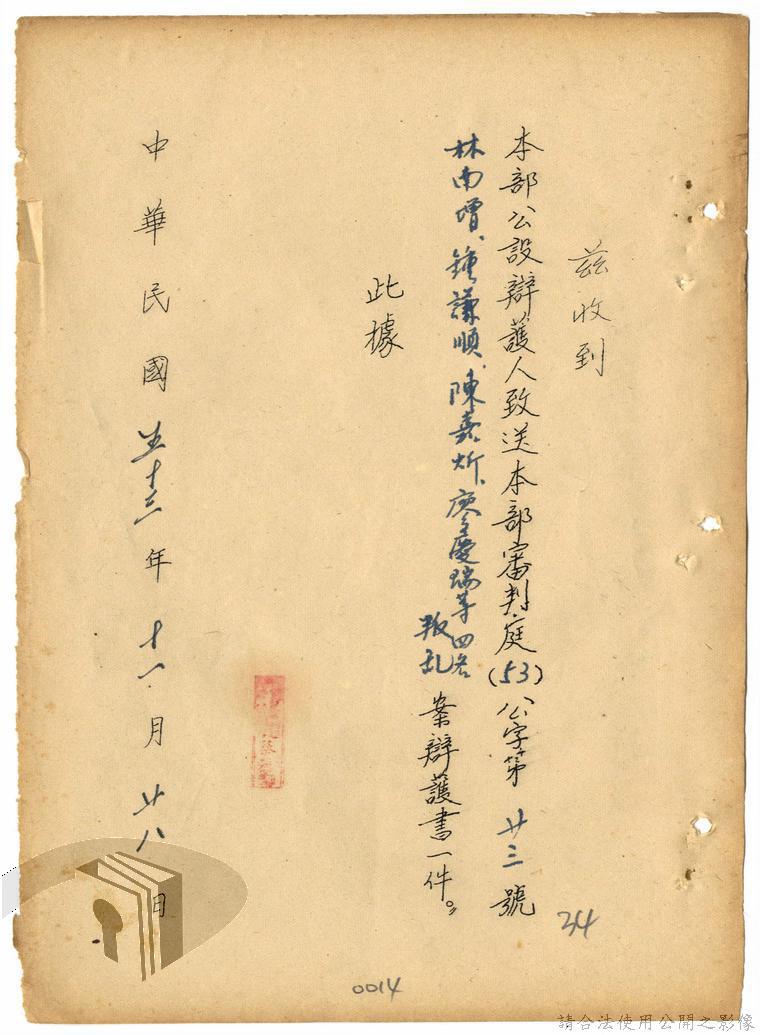 茲收到
本部公設辯護人致送本部審判庭(53)公字第廿三號
林南增、鍾謙順、陳嘉炘、庾慶瑞等四名叛乱案辯護書一件。
此據
中華民國五十三年十一月廿八日
34
0014
請合法使用公開之影像